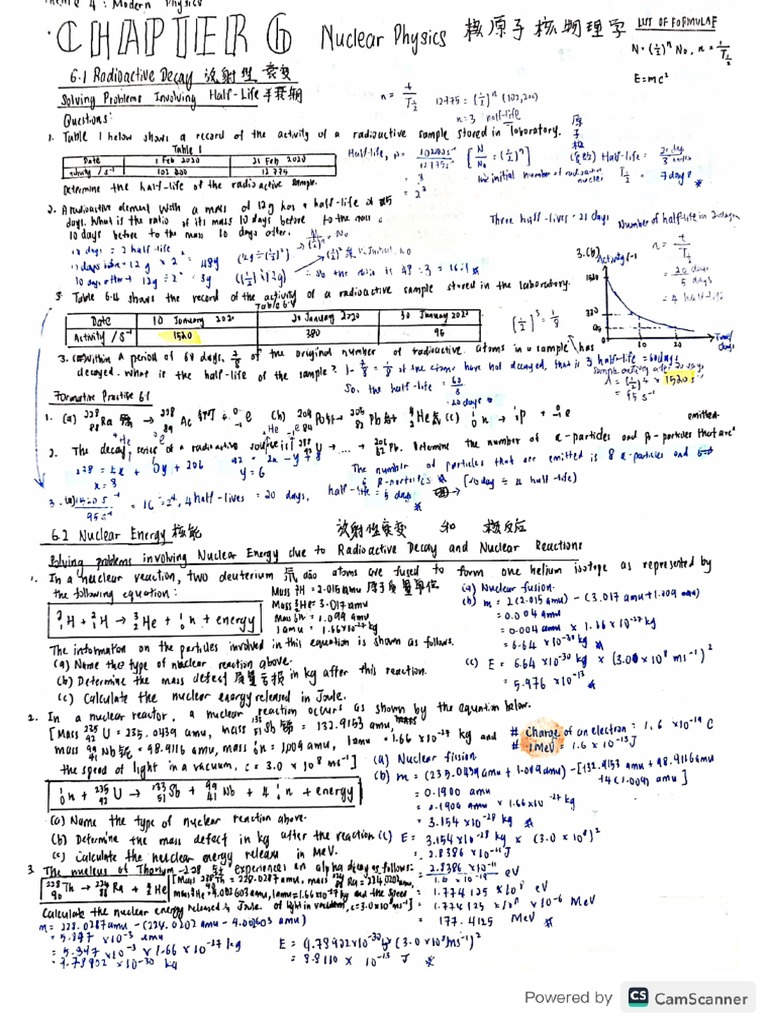 Theme 4: Modern Physics
CHAPTER 6 Nuclear Physics 核原子核物理学
LIST OF FORMULAE
N = (1/2)ⁿ N₀, n = t/T½
E=mc²
6.1 Radioactive Decay 放射性衰变
Solving Problems Involving Half-Life 半衰期
n = t/T½
12775 = (1/2)ⁿ (102,200)
n = 3 half-life
Questions:
1. Table 1 below shows a record of the activity of a radioactive sample stored in laboratory.
Table 1
Date 1 Feb 2020 21 Feb 2020
Activity /s⁻¹ 102 200 12 775
Determine the half-life of the radioactive sample.
[N/N₀ = (1/2)ⁿ]
= 2³
Half-life: T½ = 21 day / 3
= 7 days
Three half-lives = 21 days
2. A radioactive element with a mass of 12g has a half-life of 5
days. What is the ratio of its mass 10 days before to the mass
10 days before to the mass 10 days after.
10 days = 2 half-life
10 days before = 12 g × 2² = 48g
10 days after = 12g ÷ 2² = 3g
So the ratio is 48 : 3 = 16:1
Number of half-life in 20 days
n = t/T½
= 20 days / 5 days
= 4 half-life
3. Table 6.4 shows the record of the activity of a radioactive sample stored in the laboratory.
Table 6.4
Date 10 January 2020 20 January 2020 30 January 2020
Activity /s⁻¹ 1520 380 95
3.(b)
Activity/s⁻¹
1520
380
95
10 20
Time/days
(1/2)³ = 1/8
3. (a) Within a period of 60 days, 7/8 of the original number of radioactive atoms in a sample has
decayed. What is the half-life of the sample? 1 - 7/8 = 1/8 of the atoms have not decayed, that is 3 half-life = 60 days
So, the half-life = 60/3
= 20 days
Sample activity after 20 days
A = (1/2)⁴ × 1520 s⁻¹
= 95 s⁻¹
Formative Practice 6.1
1. (a) ²²⁸₈₈Ra 镭 → ²²⁸₈₉Ac 锕 + ⁰₋₁e (b) ²⁰⁹₈₄Po → ²⁰⁵₈₂Pb 铅 + ⁴₂He 氦 (c) ¹₀n → ¹₁p + ⁰₋₁e
2. The decay series of a radioactive source is ²³⁸₉₂U → ... → ²⁰⁶₈₂Pb. Determine the number of α-particles and β-particles that are emitted
238 = 4x + 0y + 206
x = 8
92 = 2x - y + 82
y = 6
The number of particles that are emitted is 8 α-particles and
6 β-particles
3. (a) 1520 s⁻¹ / 95 s⁻¹ = 16 = 2⁴, 4 half-lives = 20 days, half-life = 5 days
(20 day = 4 half-life)
6.2 Nuclear Energy 核能 放射性衰变 和 核反应
Solving problems involving Nuclear Energy due to Radioactive Decay and Nuclear Reactions
1. In a nuclear reaction, two deuterium 氘 dāo atoms are fused to form one helium isotope as represented by
the following equation:
²₁H + ²₁H → ³₂He + ¹₀n + energy
Mass ²₁H = 2.015 amu 原子质量单位
Mass ³₂He = 3.017 amu
Mass ¹₀n = 1.009 amu
1 amu = 1.66×10⁻²⁷ kg
The information on the particles involved in this equation is shown as follows.
(a) Name the type of nuclear reaction above.
(b) Determine the mass defect 质量亏损 in kg after this reaction.
(c) Calculate the nuclear energy released in Joule.
(a) Nuclear fusion.
(b) m = 2(2.015 amu) - (3.017 amu + 1.009 amu)
= 0.004 amu
= 0.004 amu × 1.66 × 10⁻²⁷ kg
= 6.64 × 10⁻³⁰ kg
(c) E = 6.64 × 10⁻³⁰ kg × (3.00 × 10⁸ ms⁻¹)²
= 5.976 × 10⁻¹³
2. In a nuclear reactor, a nuclear reaction occurs as shown by the equation below.
[Mass ²³⁵₉₂U = 235.0439 amu, mass ¹³³₅₁Sb 锑 = 132.9153 amu,
mass ⁹⁹₄₁Nb 铌 = 98.9116 amu, mass ¹₀n = 1.009 amu, 1 amu = 1.66 × 10⁻²⁷ kg and
the speed of light in a vacuum, c = 3.0 × 10⁸ ms⁻¹]
# Charge of an electron = 1.6 × 10⁻¹⁹ C
# 1MeV = 1.6 × 10⁻¹³J
¹₀n + ²³⁵₉₂U → ¹³³₅₁Sb + ⁹⁹₄₁Nb + 4 ¹₀n + energy
(a) Name the type of nuclear reaction above.
(b) Determine the mass defect in kg after the reaction
(c) Calculate the nuclear energy release in MeV.
(a) Nuclear fission
(b) m = (235.0439 amu + 1.009 amu) - [132.9153 amu + 98.9116 amu
+ 4(1.009 amu)]
= 0.1900 amu
= 0.1900 amu × 1.66×10⁻²⁷ kg
= 3.154 × 10⁻²⁸ kg
(c) E = 3.154 × 10⁻²⁸ kg × (3.0 × 10⁸)²
= 2.8386 × 10⁻¹¹ J
= 2.8386 × 10⁻¹¹ / 1.6 × 10⁻¹⁹ eV
= 1.774125 × 10⁸ eV
= 1.774125 × 10⁸ × 10⁻⁶ MeV
= 177.4125 MeV
3 The nucleus of Thorium-228 experiences an alpha decay as follows:
²²⁸₉₀Th → ²²⁴₈₈Ra + ⁴₂He
[Mass ²²⁸₉₀Th = 228.0287 amu, mass ²²⁴₈₈Ra = 224.0202 amu,
mass ⁴₂He = 4.002603 amu, 1 amu = 1.66×10⁻²⁷ kg and the speed
of light in vacuum, c = 3.0×10⁸ ms⁻¹]
Calculate the nuclear energy released in Joule.
m = 228.0287 amu - (224.0202 amu - 4.002603 amu)
= 5.897 × 10⁻³ amu
= 5.897 × 10⁻³ × 1.66 × 10⁻²⁷ kg
= 9.78902 × 10⁻³⁰ kg
E = 9.78902 × 10⁻³⁰ kg (3.0 × 10⁸ ms⁻¹)²
= 8.8110 × 10⁻¹³ J
Powered by CS CamScanner